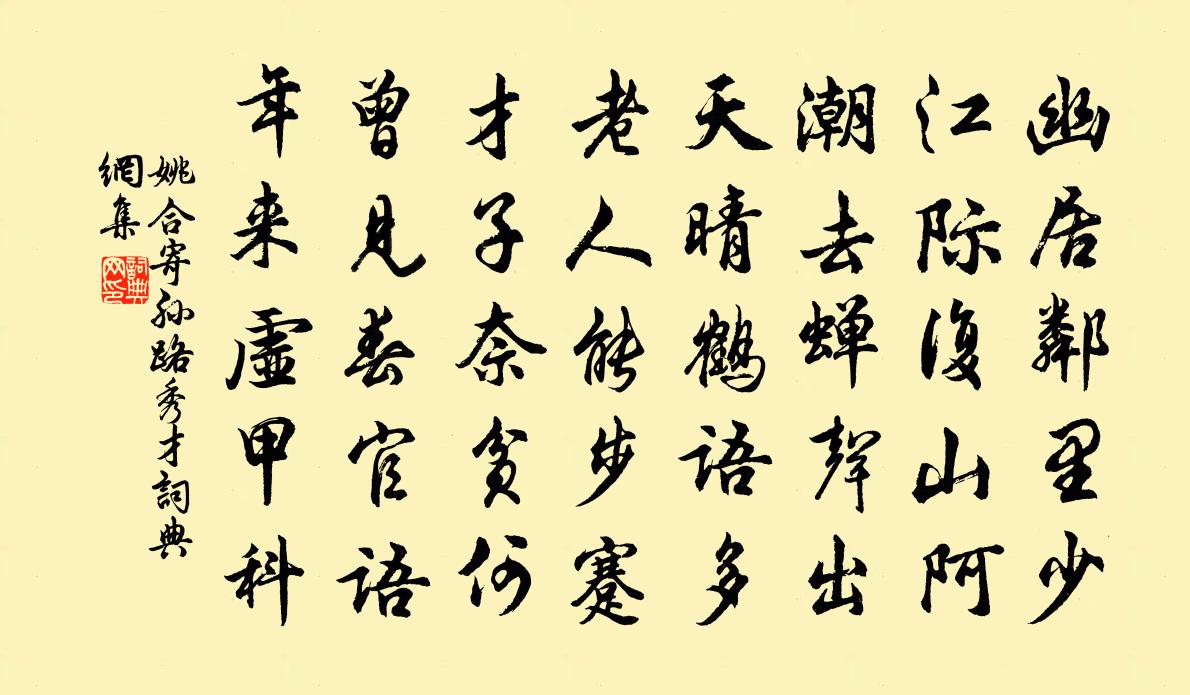 幽居鄰里少
江际復山阿
潮去蝉聲出
天晴鹤語多
老人能步蹇
才子奈貧何
曾見春官語
年来虛甲科
姚合寄孙路秀才詞典
網集
詞典
网印